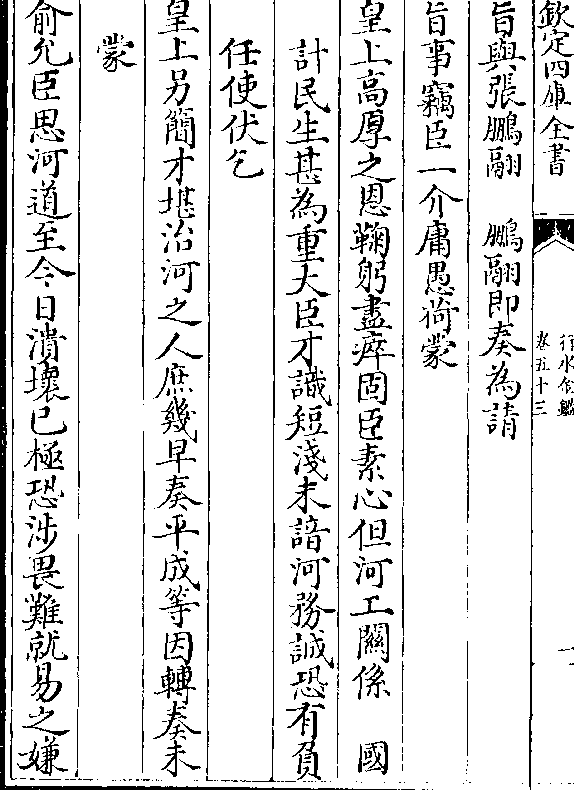 欽定四庫全書
行水金鑑
卷五十三
一
旨與張鵬翮　鵬翮即奏為請
旨事竊臣一介庸愚荷蒙
皇上高厚之恩鞠躬盡瘁固臣素心但河工關係　國
計民生甚為重大臣才識短淺未諳河務誠恐有負
任使伏乞
皇上另簡才堪治河之人庶幾早奏平成等因轉奏未
蒙
俞允臣思河道至今日潰壞已極恐涉畏難就易之嫌